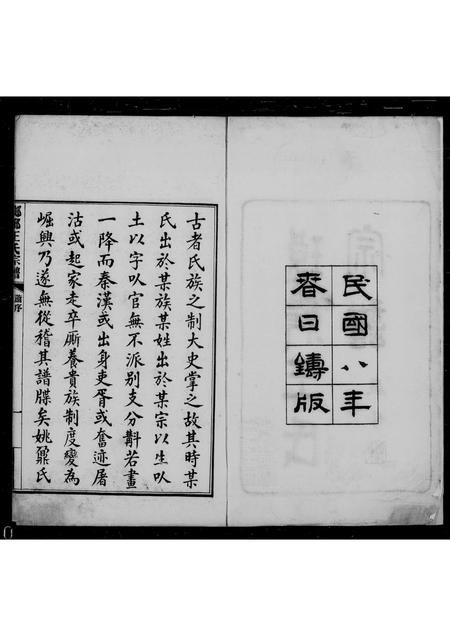 民國八年
春日鑄版
古者氏族之制大史掌之故其時某
氏出於某族某姓出於某宗以生以
土以字以官無不派別支分斠若畫
一降而秦漢或出身吏胥或奮迹屠
沽或起家走卒廝養貴族制度變為
崛興乃遂無從稽其譜牒矣姚鼐氏
王氏宗譜
序